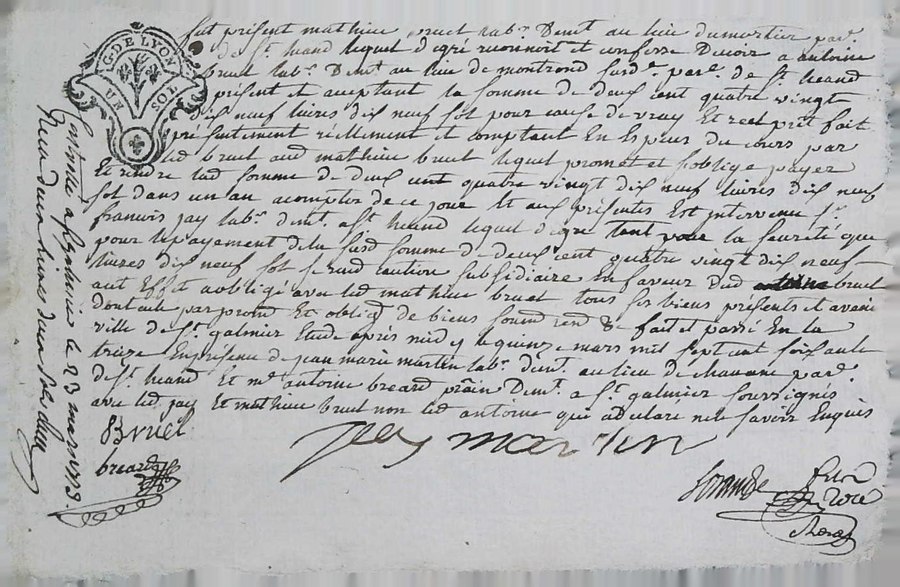 G. DE LYON
UN SOL
fut présent mathieu bruel lab.r Dem.t au lieu dumortier par.e
de S.t heand lequel degré reconnoit et confesse Devoir a antoine
bruel lab.r Dem.t au lieu de montrond susd.e par.e de S.t heand
présent et acceptant la somme de deux cent quatre vingt
dix neuf livres dix neuf sol pour cause de vray Et reel prêt fait
présentement réellement et comptant En Espèces du cours par
led bruel aud mathieu bruel lequel promet et soblige payer
Et rendre lad somme de deux cent quatre vingt dix neuf livres dix neuf
sol dans un an acompter de ce jour Et aux présentes Est intervenu S.r
francois jay lab.r dem.t a S.t heand lequel degré tant pour la seureté que
pour lepayement dela susd somme de deux cent quatre vingt dix neuf
livres dix neuf sol se rend caution subsidiaire En faveur dud bruel
aut Effet aobligé avec led mathieu bruel tous ses biens présents et avenir
dont acte par prom Et oblig de biens soum ren & fait et passé En la
ville de S.t galmier Etude après midy le quinze mars mil sept cent soixante
treize En présence de jean marie martin lab.r dem.t au lieu de chavane par.e
de S.t heand Et m.e antoine breard prãin Dem.t a S.t galmier soussignés
avec led jay Et mathieu bruel non led antoine qui a declaré ne le savoir Enquis
Bruel
jay martin
breard
Controllé a S.t galmier le 23 mars 1773